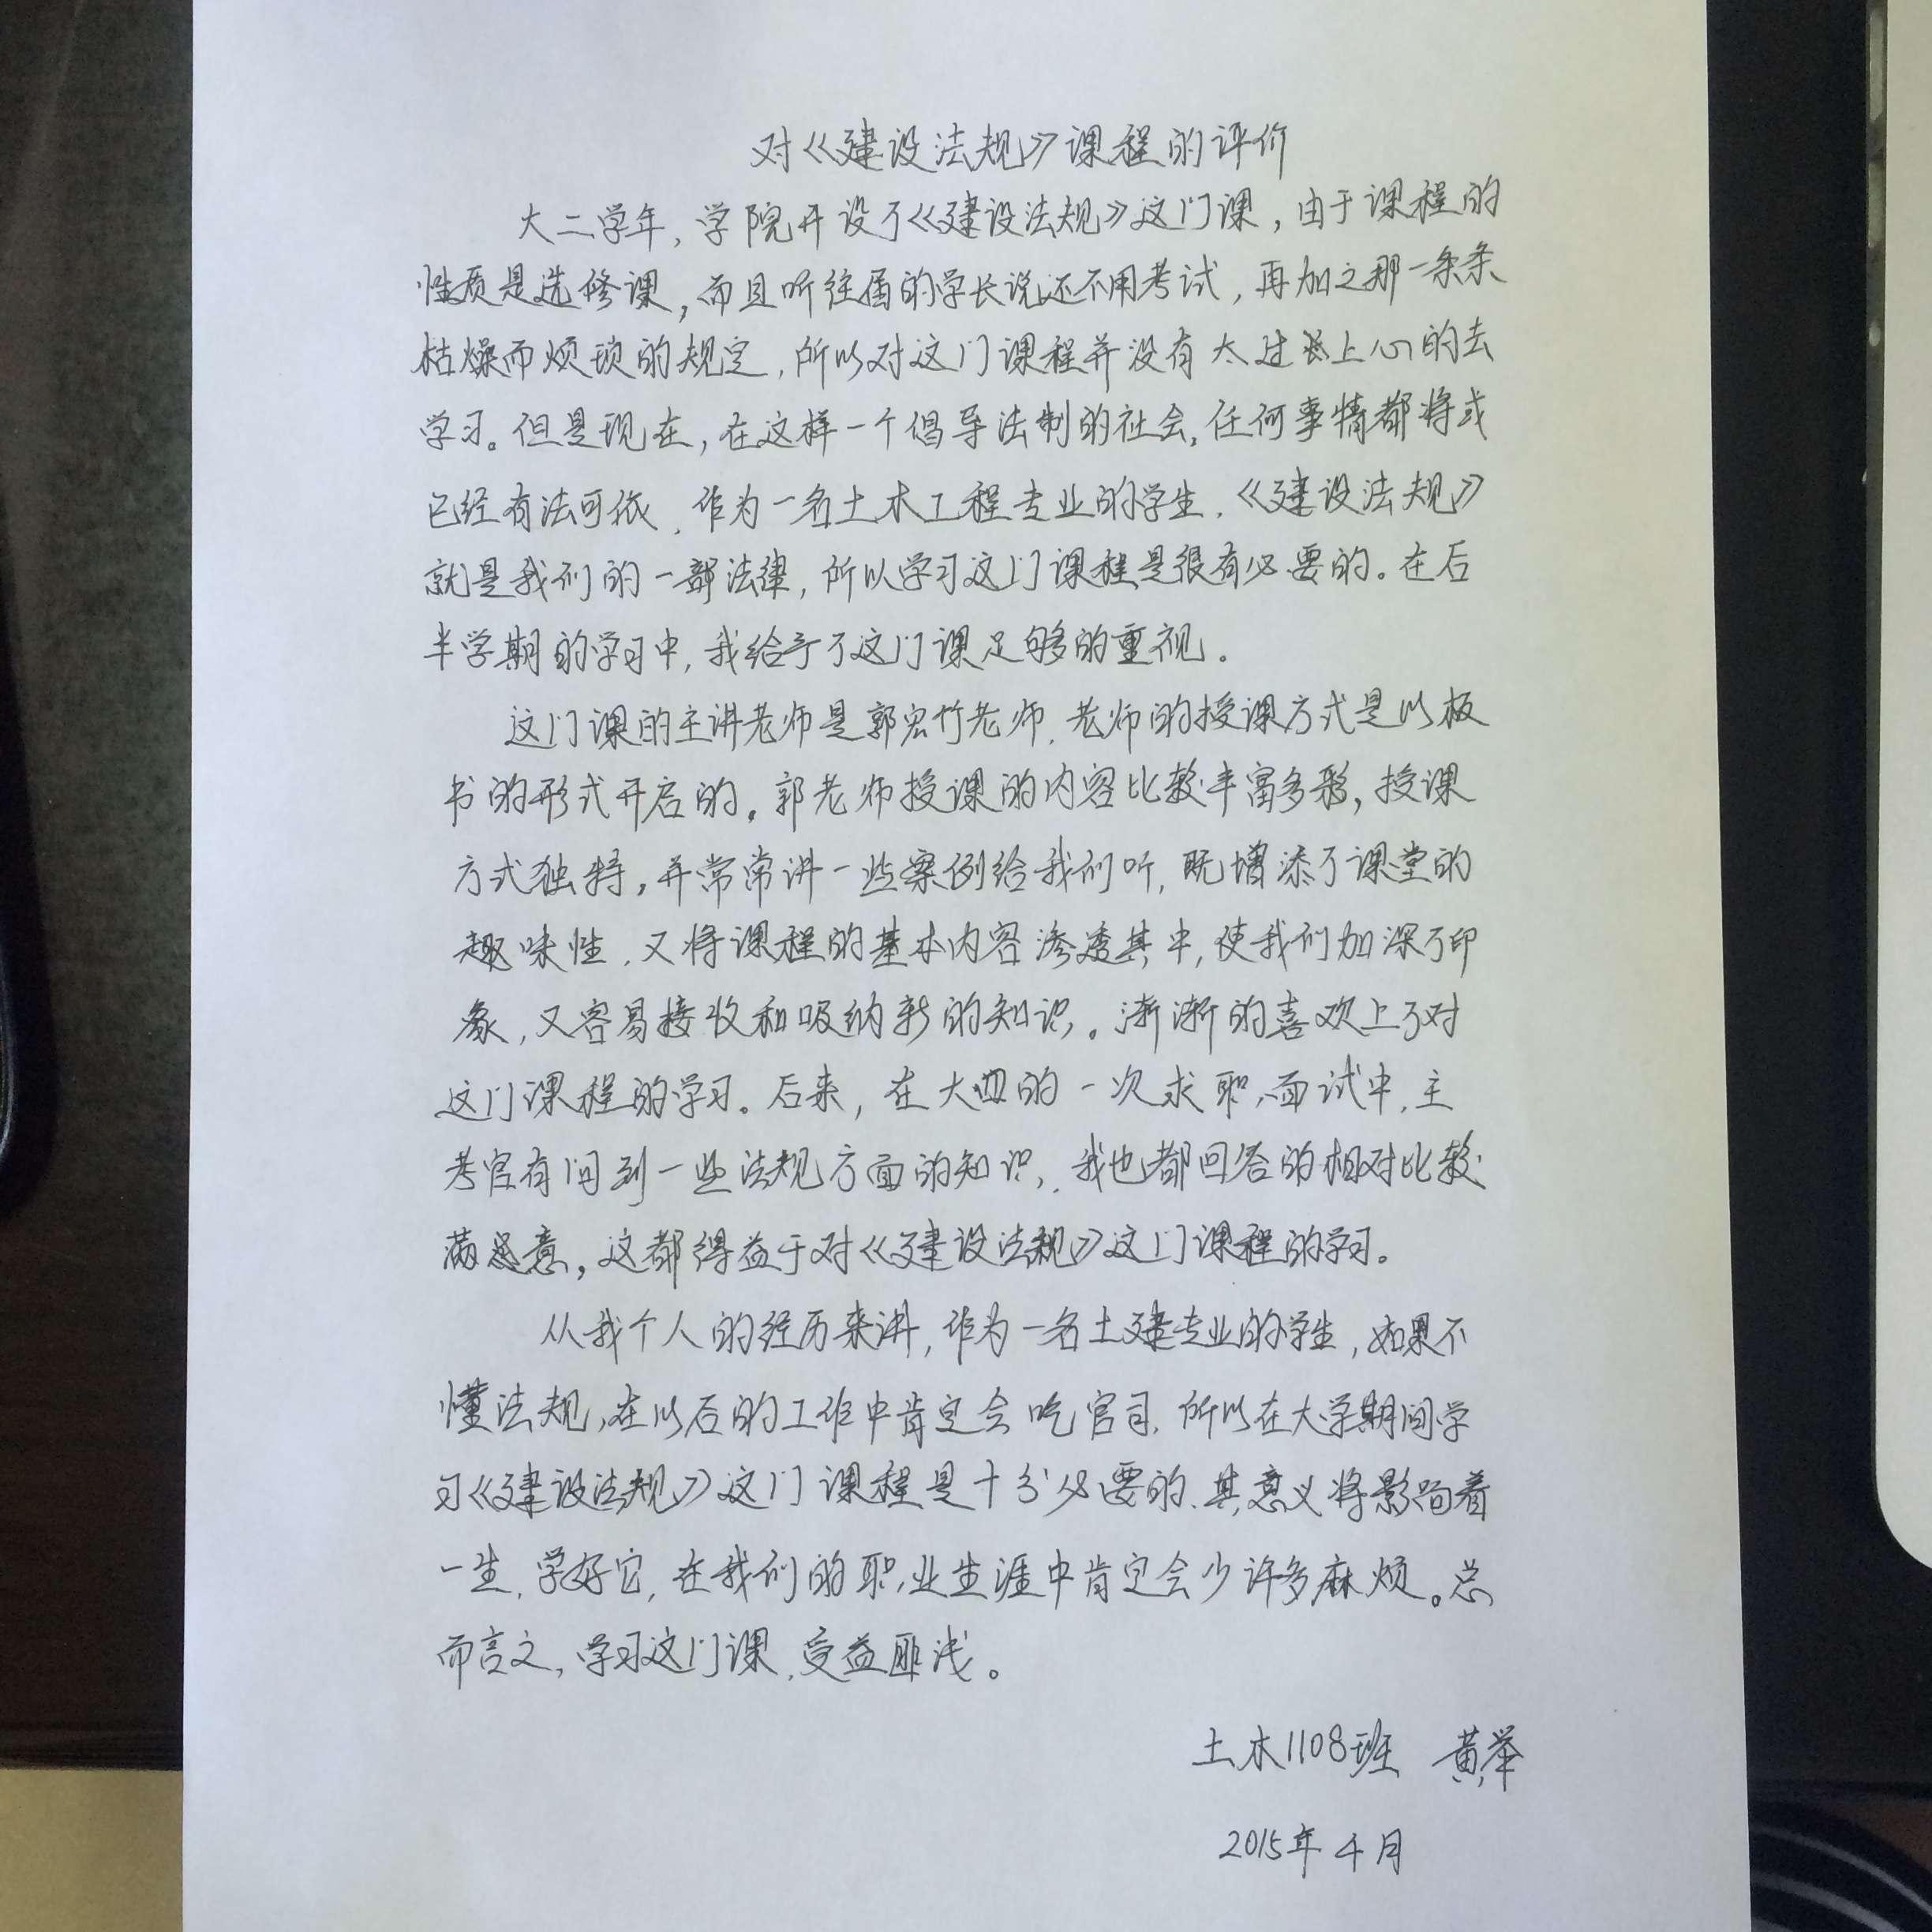 对《建设法规》课程的评价
大二学年，学院开设了《建设法规》这门课，由于课程的
性质是选修课，而且听往届的学长说还不用考试，再加之那一条条
枯燥而烦琐的规定，所以对这门课程并没有太过上心的去
学习。但是现在，在这样一个倡导法制的社会，任何事情都将或
已经有法可依，作为一名土木工程专业的学生，《建设法规》
就是我们的一部法律，所以学习这门课程是很有必要的。在后
半学期的学习中，我给予了这门课足够的重视。
这门课的主讲老师是郭宏竹老师，老师的授课方式是以板
书的形式开启的。郭老师授课的内容比较丰富多彩，授课
方式独特，并常常讲一些案例给我们听，既增添了课堂的
趣味性，又将课程的基本内容渗透其中，使我们加深了印
象，又容易接收和吸纳新的知识。渐渐的喜欢上了对
这门课程的学习。后来，在大四的一次求职面试中，主
考官有问到一些法规方面的知识，我也都回答的相对比较
满意，这都得益于对《建设法规》这门课程的学习。
从我个人的经历来讲，作为一名土建专业的学生，如果不
懂法规，在以后的工作中肯定会吃官司，所以在大学期间学
习《建设法规》这门课程是十分必要的，其意义将影响着
一生，学好它，在我们的职业生涯中肯定会少许多麻烦。总
而言之，学习这门课，受益匪浅。
土木1108班 黄举
2015年4月